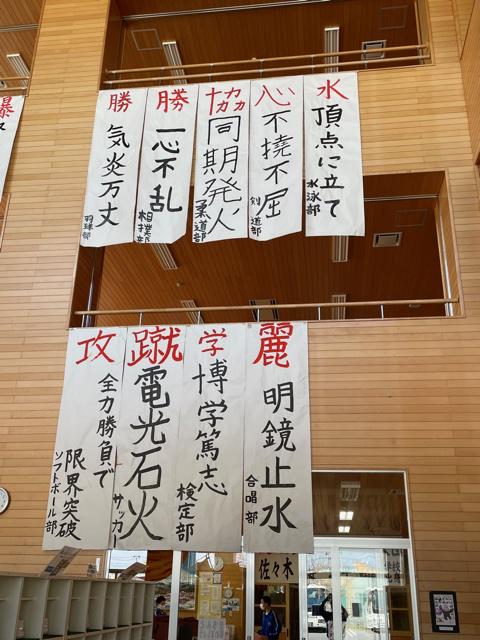 水
頂点に立て
水泳部
心
不撓不屈
剣道部
協
同期発火
柔道部
勝
一心不乱
相撲部
勝
気炎万丈
羽球部
麗
明鏡止水
合唱部
学
博学篤志
検定部
蹴
電光石火
サッカー
攻
全力勝負で
限界突破
ソフトボール部
佐々木